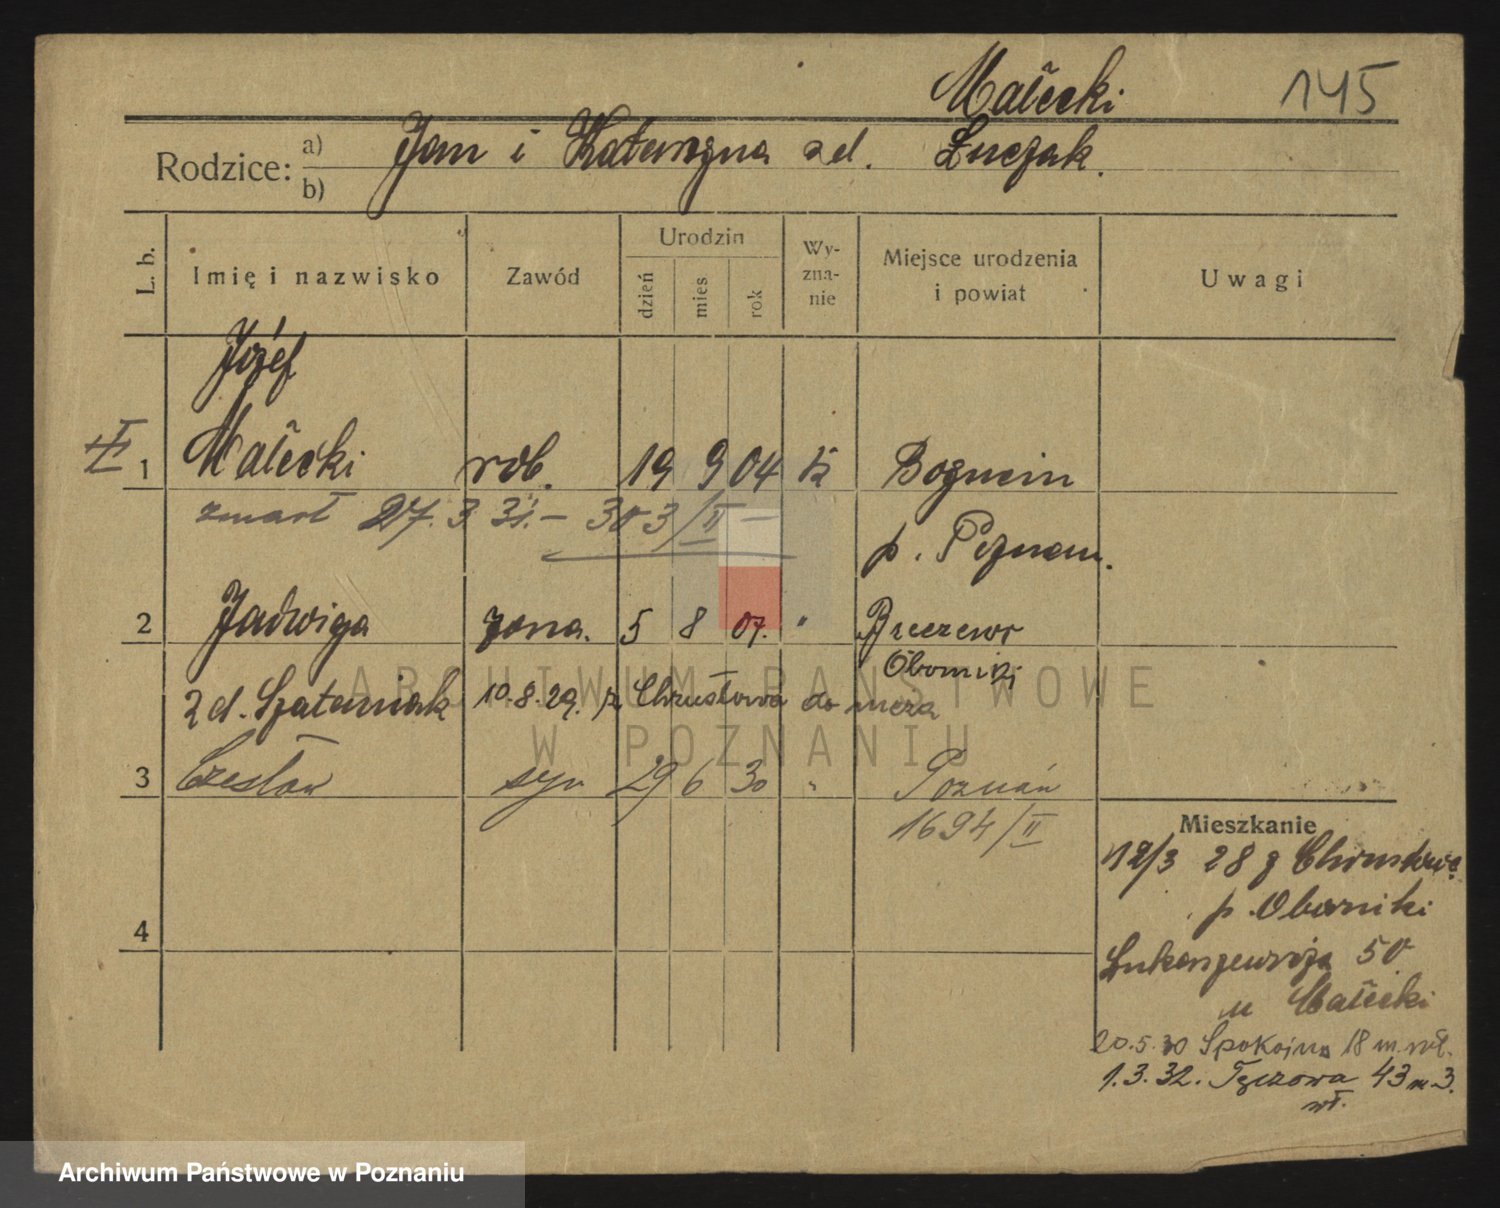 Małecki 145
Rodzice: a) Jan i Katarzyna zd. Łuczak.
b)
L. b. Imię i nazwisko Zawód Urodzin dzień mies rok Wyznanie Miejsce urodzenia i powiat Uwagi
Józef
1 Małecki rob. 19 9 04 k Bogucin
zmarł 27. 3. 31. – 303/II –
p. Poznań.
2 Jadwiga żona. 5 8 07. "
Oborniki
zd. Szataniak 10.8.29. z Chrustowa do męża
3 Czesław syn 29 6 30 " Poznań
1694/II
4
Mieszkanie
12/3 28 z Chrustowa
p. Oborniki
Łukaszewicza 50
u Małecki
20.5.30 Spokojna 18 m. wł.
1.3.32. Tęczowa 43 m 3.
wł.
ARCHIWUM PAŃSTWOWE
W POZNANIU
Archiwum Państwowe w Poznaniu